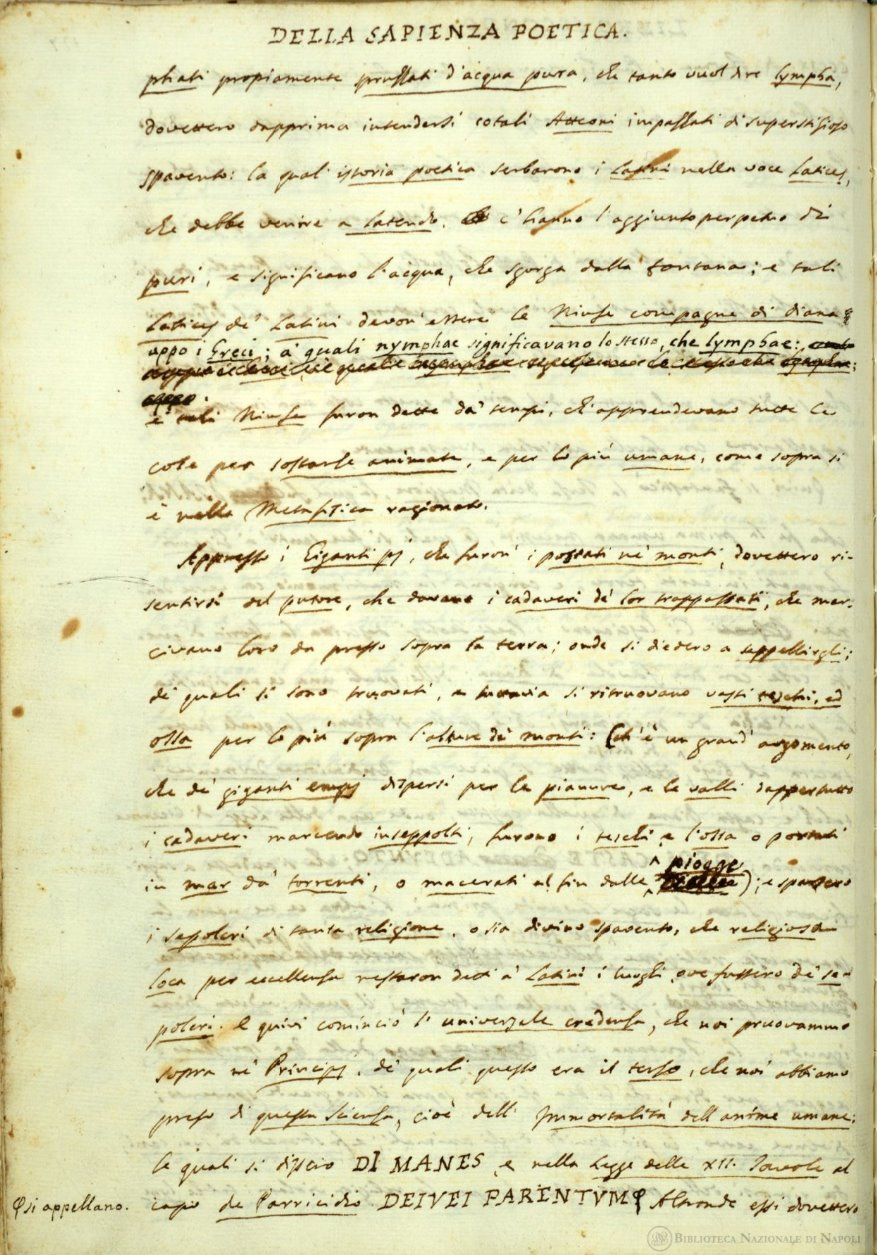 DELLA SAPIENZA POETICA.
phati propiamente spruzzati d'acqua pura, che tanto vuol dire lympha,
dovettero dapprima intendersi cotali Atteoni impazzati di superstizioso
spavento: la qual istoria poetica serbarono i Latini nella voce Latices,
che debbe venire a latendo, c' hanno l'aggiunto perpetuo di
puri, e significano l'acqua, che sgorga dalla fontana; e tali
Latices de' Latini devon' essere le Ninfe compagne di Diana
appo i Greci; a' quali nymphae significavano lo stesso, che lymphae:
e tali Ninfe furon dette da' tempi, ch'apprendevano tutte le
cose per sostanze animate, e per lo più umane, come sopra si
è nella Metafisica ragionato.
Appresso i Giganti pj, che furon' i postati ne' monti, dovettero ri-
sentirsi del putore, che davano i cadaveri de' lor trappassati, che mar-
civano loro da presso sopra la terra; onde si diedero a seppellirgli;
de' quali si sono truovati, e tuttavia si ritruovano vasti teschi, ed
ossa per lo più sopra l'alture de' monti: (ch'è un grand' argomento,
che de' giganti empj dispersi per le pianure, e le valli dappertutto
i cadaveri marcendo inseppolti, furono i teschi, e l'ossa o portati
in mar da' torrenti, o macerati al fin dalle piogge); e sparsero
i sepolcri di tanta religione, o sia divino spavento, che religiosa
loca per eccellenza restaron detti a' Latini i luoghi, ove fussero de' se-
polcri. E quivi cominciò l' universale credenza, che noi pruovammo
sopra ne' Principj, de' quali questo era il terzo, che noi abbiamo
preso di questa Scienza, cioè dell' Immortalità dell'anime umane;
le quali si dissero DI MANES, e nella Legge delle XII. Tavole al
capo de Parricidio DEIVEI PARENTVM φ Altronde essi dovettero
φ si appellano.
BIBLIOTECA NAZIONALE DI NAPOLI